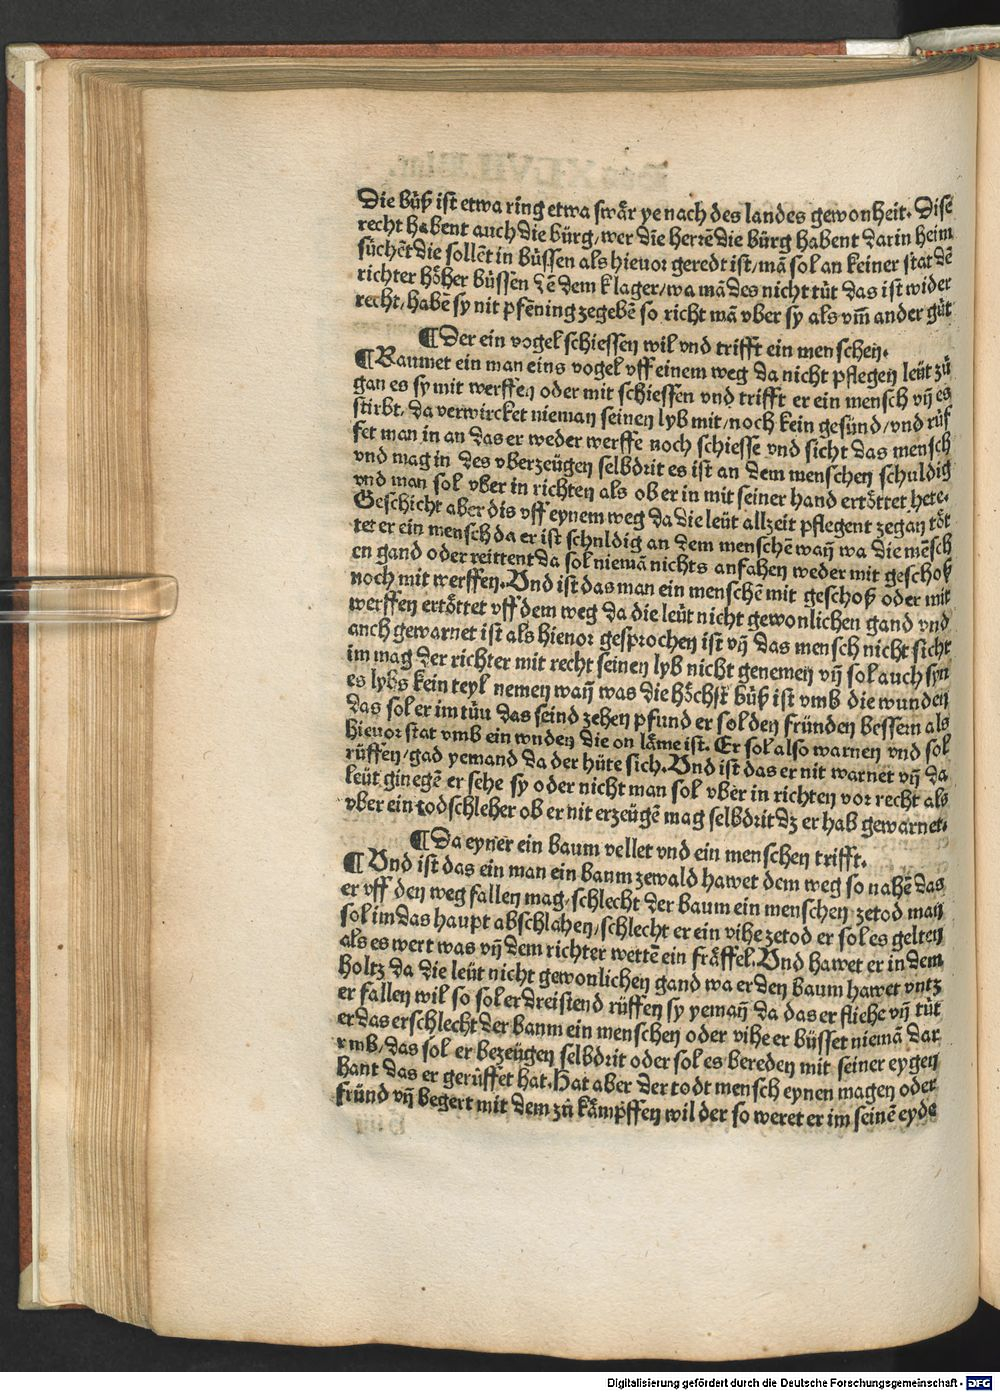 Die büß ist etwa ring etwa swår ye nach des landes gewonheit. Dise
recht habent auch die bürg/wer die herrē die bürg habent darin heim
süchēt die sollēt in büssen als hieuor geredt ist/mā sol an keiner stat dē
richter höher büssen dē dem klager/wa mā des nicht tüt das ist wider
recht/habē sy nit pfēning zegebē so richt mā vber sy als vm̄ ander güt
¶Der ein vogel schiessen wil vnd trifft ein menschen.
¶Raumet ein man eins vogel vff einem weg da nicht pflegen leüt zů
gan es sy mit werffen oder mit schiessen vnd trifft er ein mensch vn̄ es
stirbt. da verwircket nieman seinen lyb mit/noch kein gesünd/vnd rüf
fet man in an das er weder werffe noch schiesse vnd sicht das mensch
vnd mag in des vberzeügen selbdrit es ist an dem menschen schuldig
vnd man sol vber in richten als ob er in mit seiner hand ertöttet hete.
Geschicht aber dis vff eynem weg da die leüt allzeit pflegent zegan töt
tet er ein mensch da er ist schuldig an dem menschē wan̄ wa die mēsch
en gand oder reittent da sol niemā nichts anfahen weder mit geschoß
noch mit werffen. Vnd ist das man ein menschē mit geschoß oder mit
werffen ertöttet vff dem weg da die leüt nicht gewonlichen gand vnd
auch gewarnet ist als hieuor gesprochen ist vn̄ das mensch nicht sicht
im mag der richter mit recht seinen lyb nicht genemen vn̄ sol auch syn
es lybs kein teyl nemen wan̄ was die höchst büß ist vmb die wunden
das sol er im tün das seind zehen pfund er sol den fründen bessern als
hieuor stat vmb ein wnden die on låme ist. Er sol also warnen vnd sol
rüffen/gad yemand da der hüte sich. Vnd ist das er nit warnet vn̄ da
leüt ginegē er sehe sy oder nicht man sol vber in richten vor recht als
vber ein todschleher ob er nit erzeügē mag selbdrit dz er hab gewarnet.
¶Da eyner ein baum vellet vnd ein menschen trifft.
¶Vnd ist das ein man ein baum zewald hawet dem weg so nahē das
er vff den weg fallen mag/schlecht der baum ein menschen zetod man
sol im das haupt abschlahen/schlecht er ein vihe zetod er sol es gelten
als es wert was vn̄ dem richter wettē ein fråffel. Vnd hawet er in dem
holtz da die leüt nicht gewonlichen gand wa er den baum hawet vntz
er fallen wil so sol er dreistend rüffen sy yeman̄ da das er fliehe vn̄ tüt
er das erschlecht der baum ein menschen oder vihe er büsset niemā dar
vmb/das sol er bezeügen selbdrit oder sol es bereden mit seiner eygen
hant das er gerüffet hat. Hat aber der todt mensch eynen magen oder
fründ vn̄ begert mit dem zů kåmpffen wil der so weret er im seinē eyde
Digitalisierung gefördert durch die Deutsche Forschungsgemeinschaft - DFG